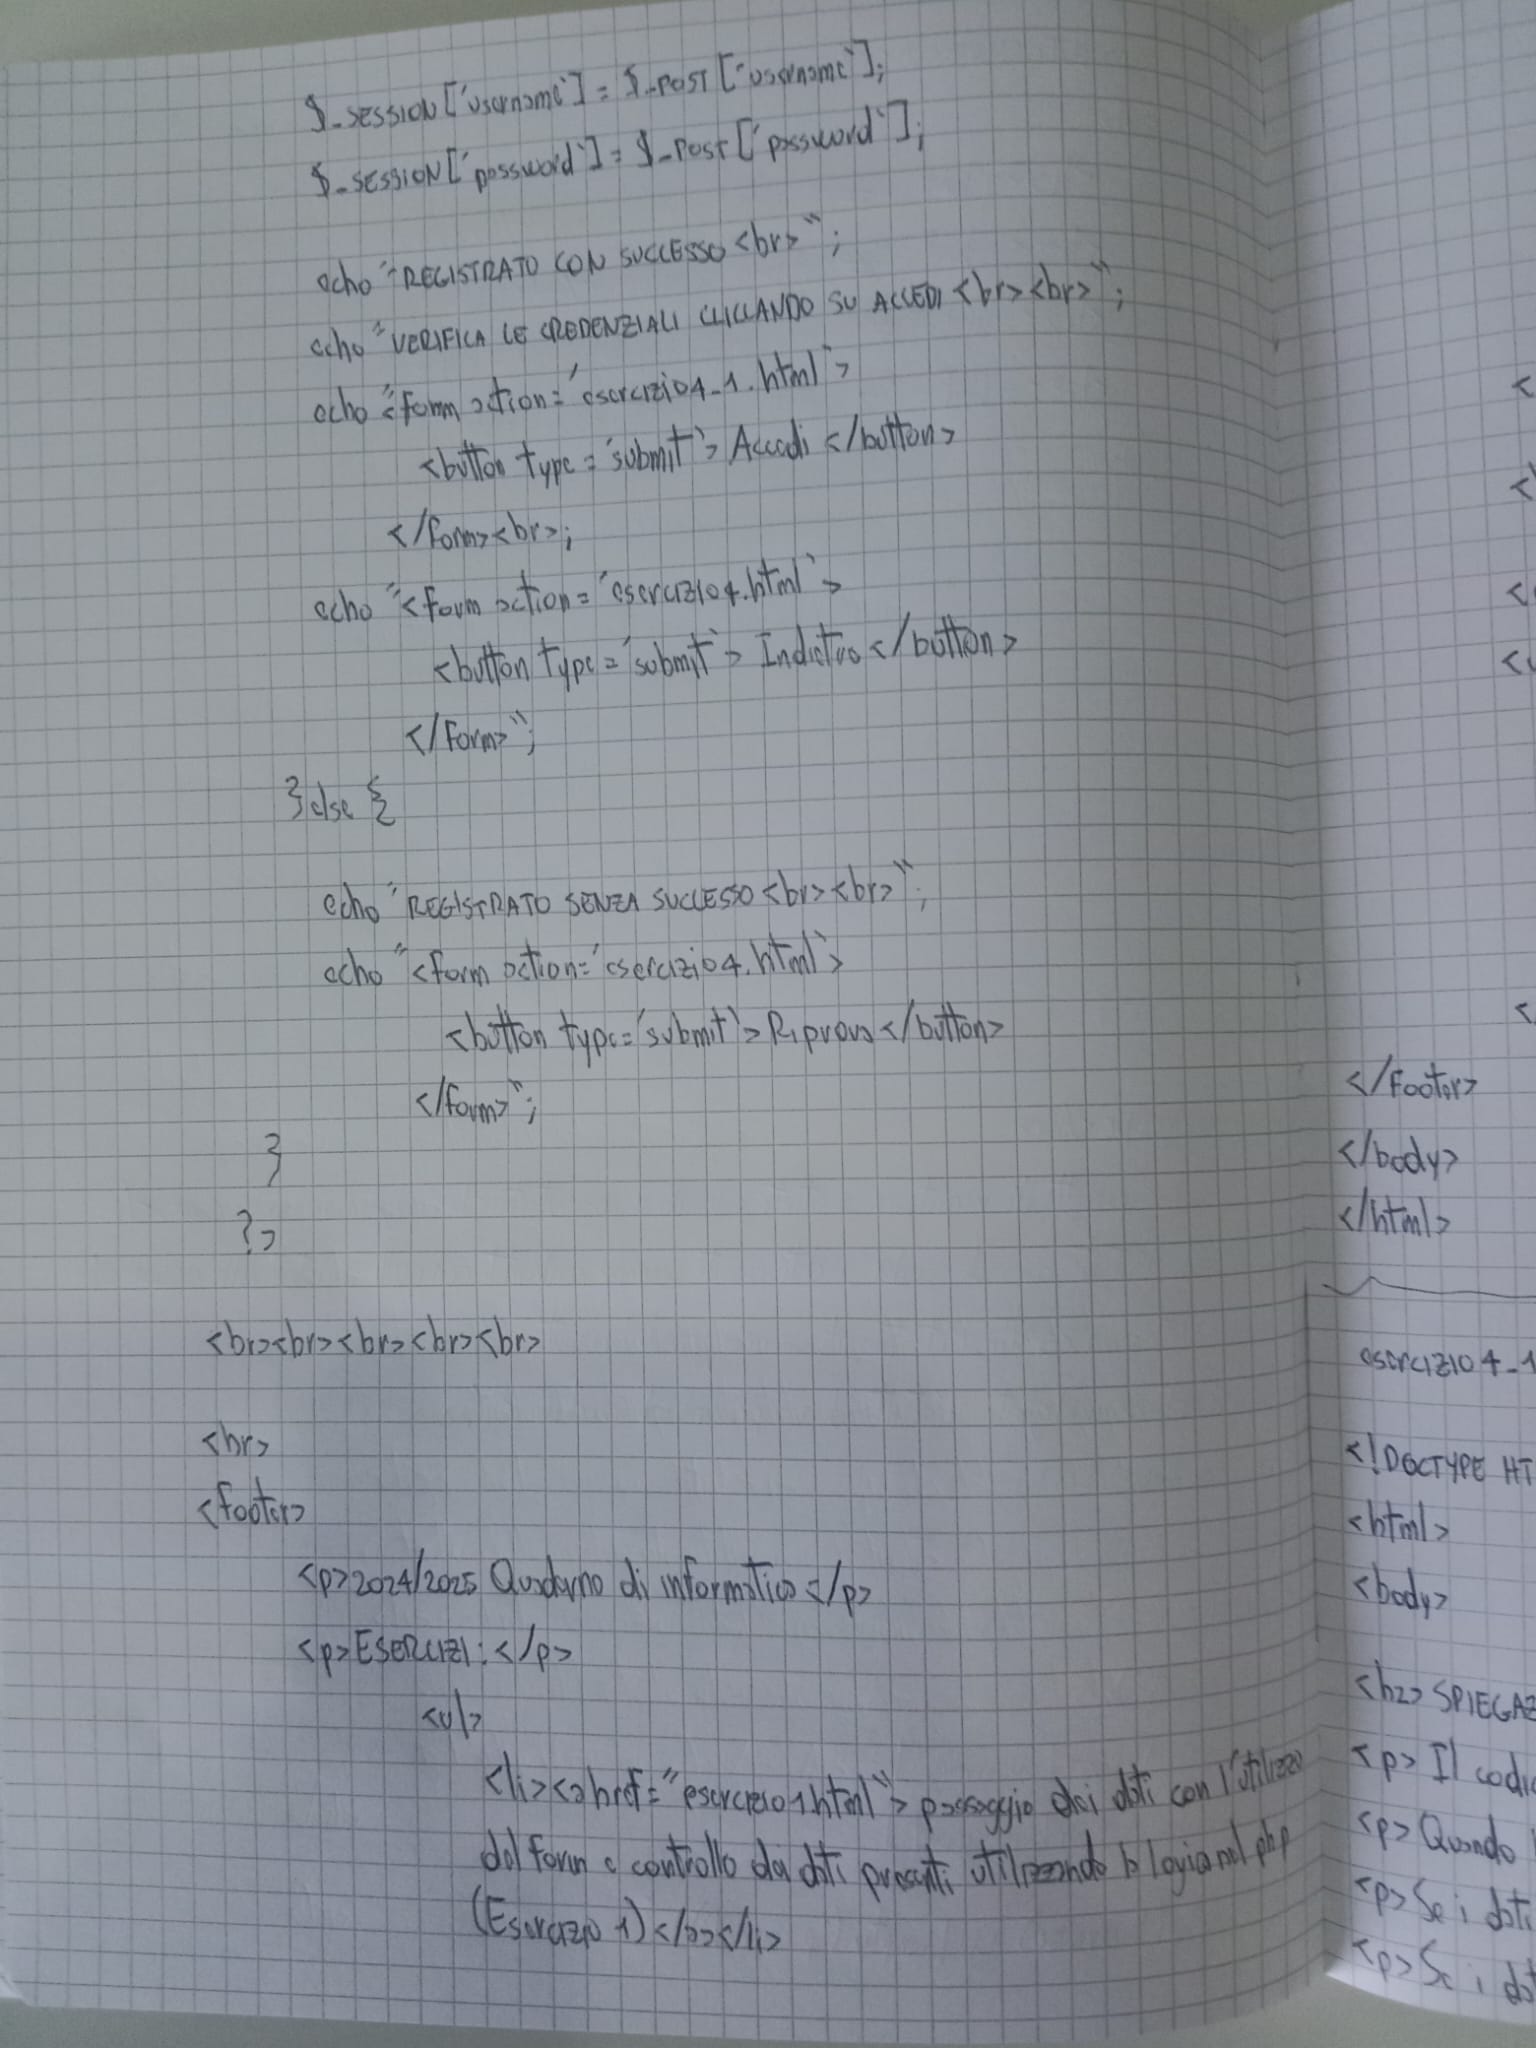 $_SESSION['username'] = $_POST['username'];
$_SESSION['password'] = $_POST['password'];
echo "REGISTRATO CON SUCCESSO<br>";
echo "VERIFICA LE CREDENZIALI CLICCANDO SU ACCEDI<br><br>";
echo "<form action='esercizio4_1.html'>
<button type='submit'>Accedi</button>
</form><br>;
echo "<form action='esercizio4.html'>
<button type='submit'>Indietro</button>
</form>";
}else{
echo "REGISTRATO SENZA SUCCESSO<br><br>";
echo "<form action='esercizio4.html'>
<button type='submit'>Riprova</button>
</form>";
}
?>
<br><br><br><br><br>
<hr>
<footer>
<p>2024/2025 Quaderno di informatica</p>
<p>ESERCIZI:</p>
<ul>
<li><a href="esercizio1.html">passaggio dei dati con l'utilizzo
del form e controllo dei dati presenti utilizzando la logica nel php
(Esercizio 1)</a></li>
</footer>
</body>
</html>
esercizio4_1
<!DOCTYPE HT
<html>
<body>
<h2>SPIEGAZ
<p>Il codic
<p>Quando
<p>Se i dati
<p>Se i dat